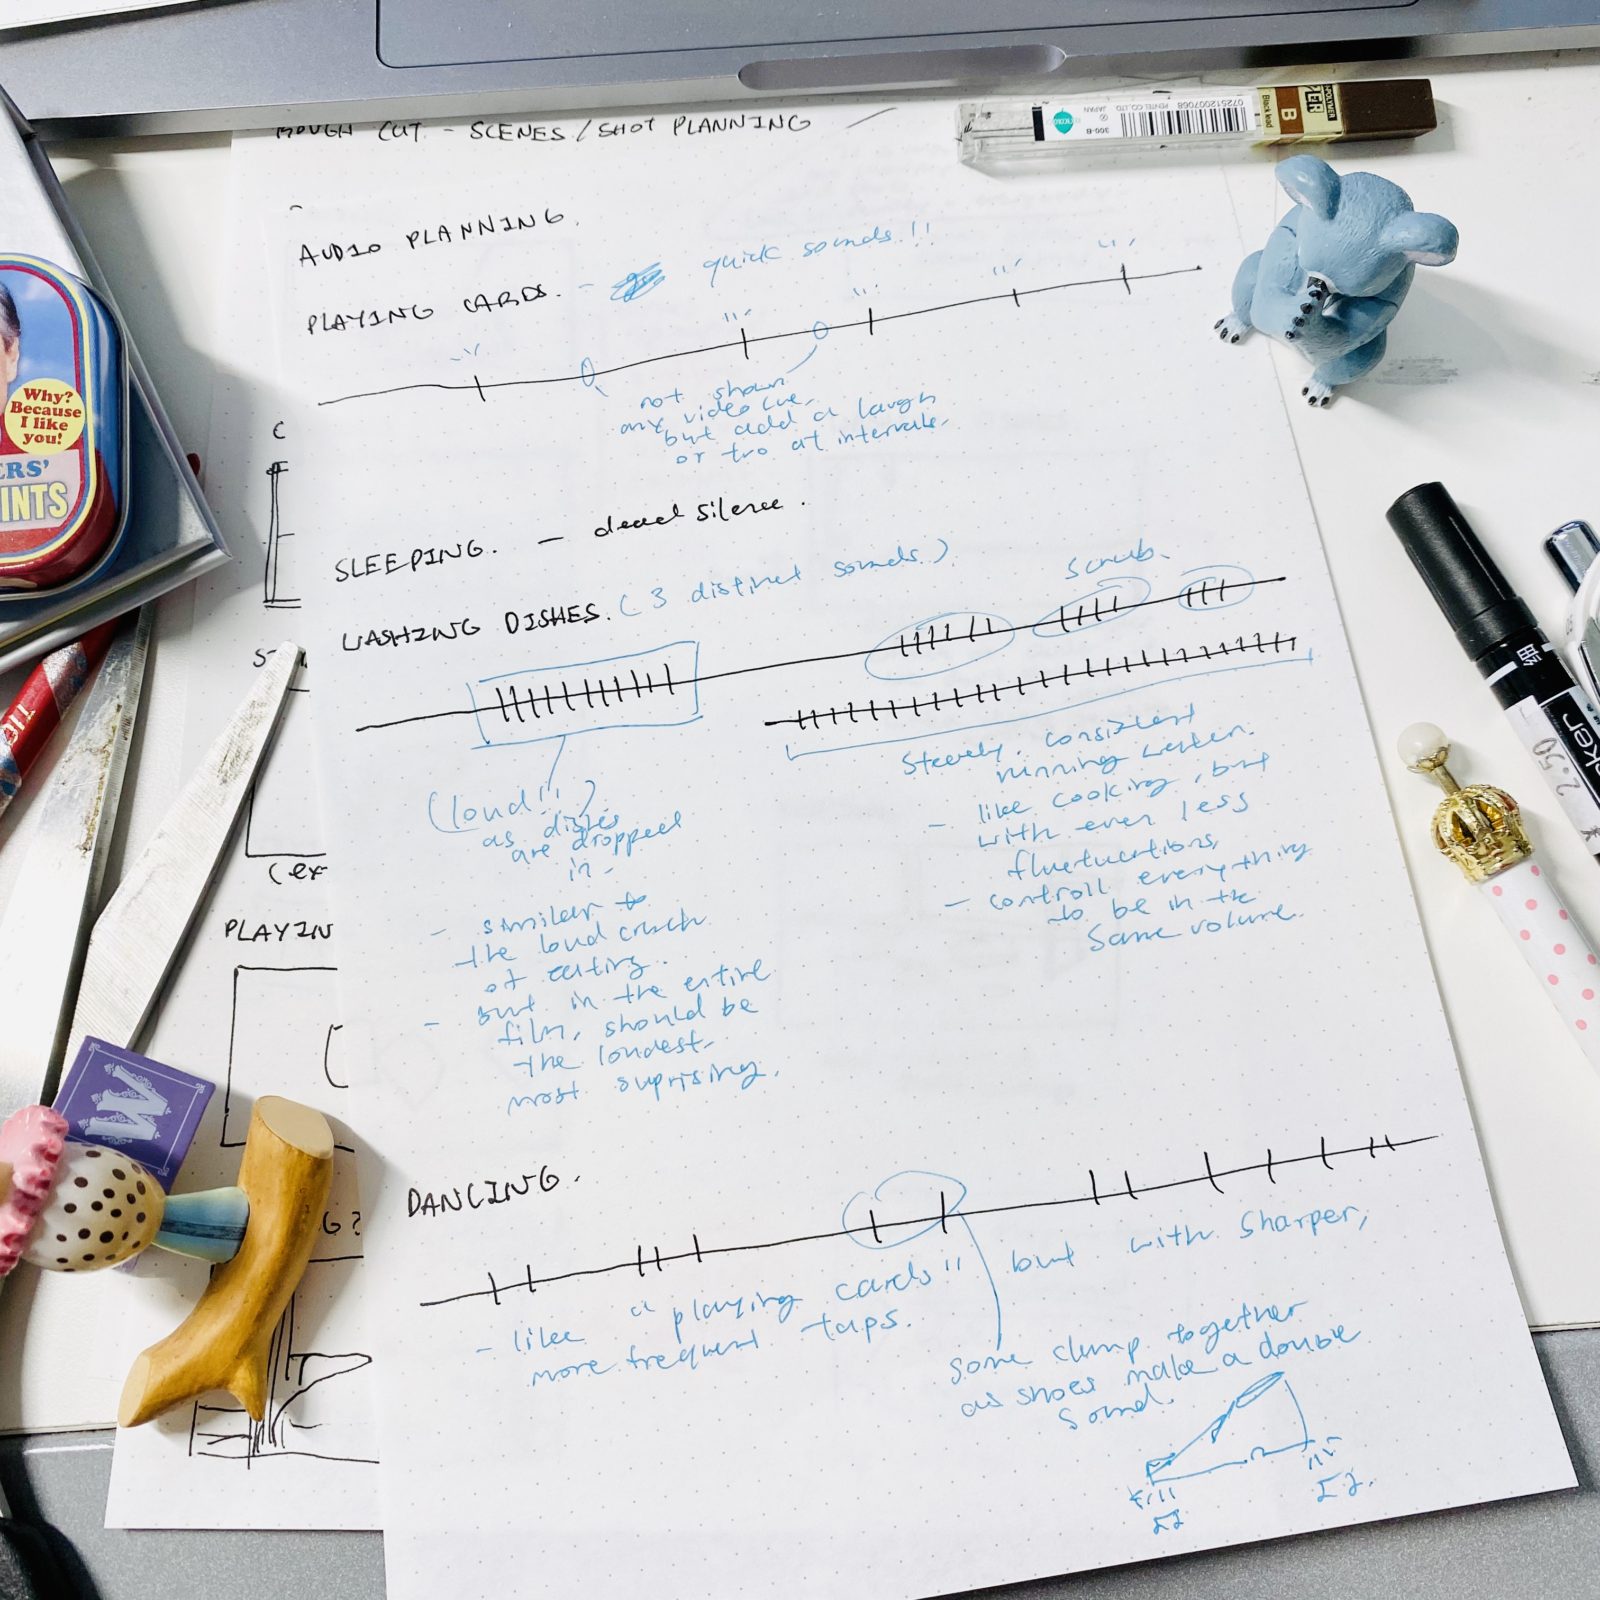 ROUGH CUT - SCENES/SHOT PLANNING
AUDIO PLANNING.
PLAYING CARDS. - quick sounds!!
not shown
any video cue,
but add a laugh
or two at intervals.
SLEEPING. - dead silence.
WASHING DISHES. (3 distinct sounds.)
scrub.
(loud!!)
as dishes
are dropped
in.
- similar to
the loud crunch
of eating.
- but in the entire
film, should be
the loudest,
most suprising.
Steady, consistent
running water.
- like cooking, but
with even less
fluctuations,
- controll everything
to be in the
same volume.
DANCING.
- like "playing cards" but with sharper,
more frequent taps.
some clump together
as shoes make a double
sound.
C
(ex
PLAYIN
G?
Why?
Because
I like
you!
ERS'
INTS
072512007068
PENTEL CO., LTD.
JAPAN
300-B
Black lead
B
POLYMER
细
ker
2.50
M